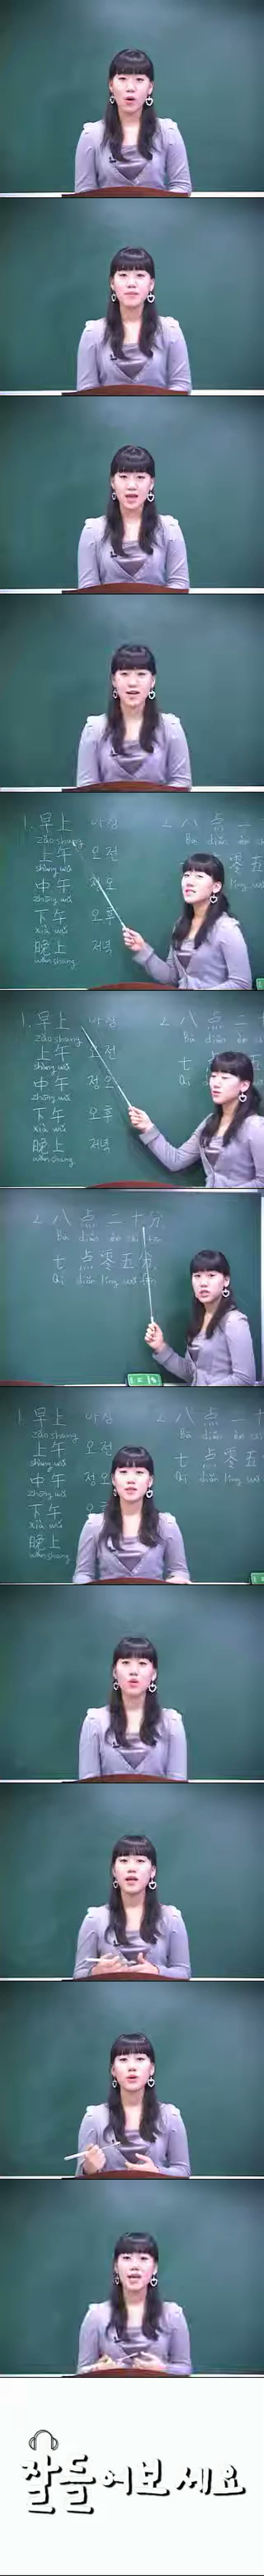 1. 早上 아침
zǎo shang
上午 오전
shàng wǔ
中午 정오
zhōng wǔ
下午 오후
xià wǔ
晚上 저녁
wǎn shang
2. 八点二十分
Bā diǎn èr shí fēn
七点零五分
Qī diǎn líng wǔ fēn
잘 들어보세요